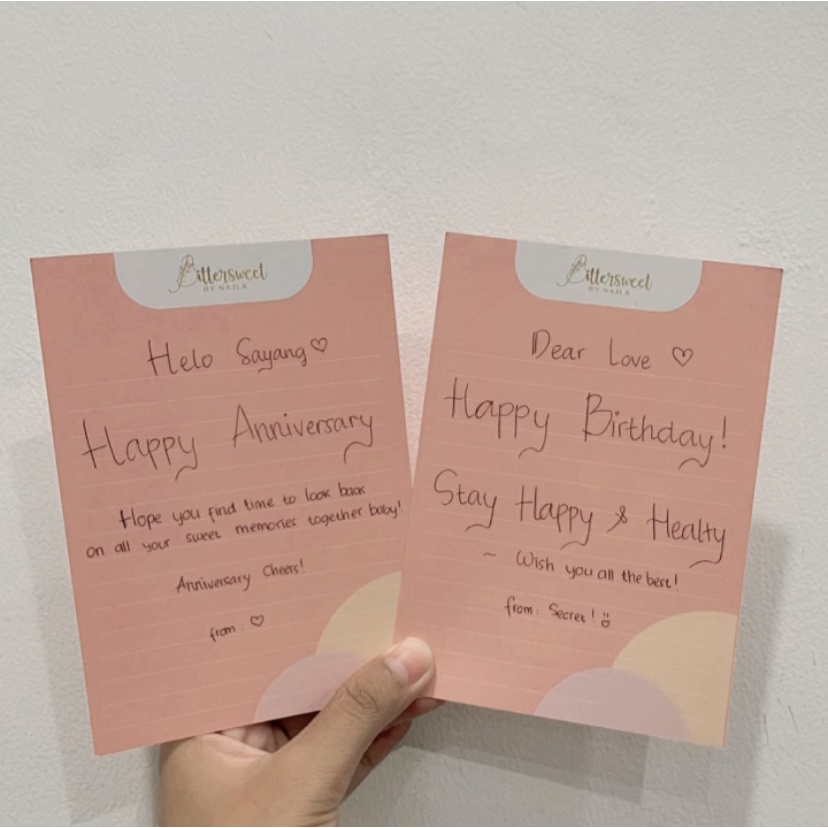 Bittersweet
BY NAJLA
Helo Sayang ♡
Happy Anniversary
Hope you find time to look back
on all your sweet memories together baby!
Anniversary Cheers!
from : ♡
Bittersweet
BY NAJLA
Dear Love ♡
Happy Birthday!
Stay Happy & Healty
~ Wish you all the best!
from : Secret! :)